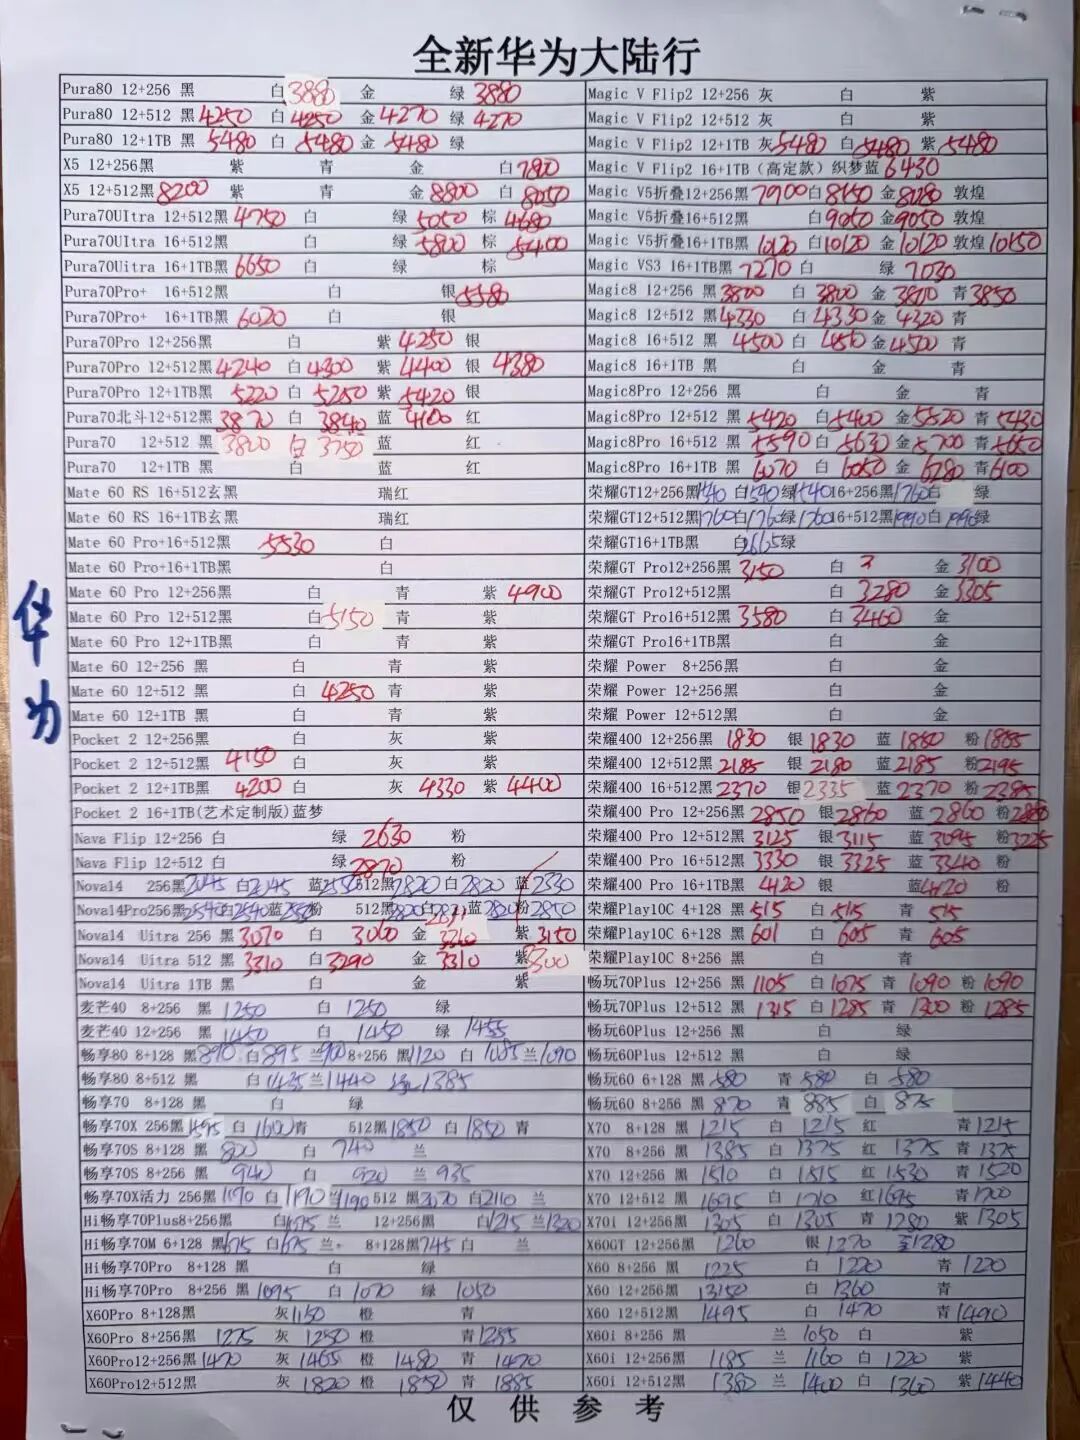 全新华为大陆行
Pura80 12+256 黑 白 3880 金 绿 3880
Pura80 12+512 黑 4250 白 4250 金 4270 绿 4270
Pura80 12+1TB 黑 5480 白 5480 金 5480 绿
X5 12+256黑 紫 青 金 白 7800
X5 12+512黑 8200 紫 青 金 8800 白 8050
Pura70UItra 12+512黑 4750 白 绿 5050 棕 4680
Pura70UItra 16+512黑 白 绿 5800 棕 5400
Pura70Uitra 16+1TB黑 6650 白 绿 棕
Pura70Pro+ 16+512黑 白 银 5580
Pura70Pro+ 16+1TB黑 6020 白 银
Pura70Pro 12+256黑 白 紫 4250 银
Pura70Pro 12+512黑 4240 白 4300 紫 4400 银 4380
Pura70Pro 12+1TB黑 5220 白 5250 紫 5420 银
Pura70北斗12+512黑 3870 白 3840 蓝 4100 红
Pura70 12+512 黑 3800 白 3750 蓝 红
Pura70 12+1TB 黑 白 蓝 红
Mate 60 RS 16+512玄黑 瑞红
Mate 60 RS 16+1TB玄黑 瑞红
Mate 60 Pro+16+512黑 5530 白
Mate 60 Pro+16+1TB黑 白
Mate 60 Pro 12+256黑 白 青 紫 4900
Mate 60 Pro 12+512黑 白 5150 青 紫
Mate 60 Pro 12+1TB黑 白 青 紫
Mate 60 12+256 黑 白 青 紫
Mate 60 12+512 黑 白 4250 青 紫
Mate 60 12+1TB 黑 白 青 紫
Pocket 2 12+256黑 白 灰 紫
Pocket 2 12+512黑 4150 白 灰 紫
Pocket 2 12+1TB黑 4200 白 灰 4330 紫 4400
Pocket 2 16+1TB(艺术定制版)蓝梦
Nava Flip 12+256 白 绿 2630 粉
Nava Flip 12+512 白 绿 2870 粉
Nova14 256黑 2045 白 2045 蓝 512黑 2820 白 2820 蓝 2330
Nova14Pro256黑 2540 白 2540 蓝 粉 512黑 白 蓝 2820 粉 2850
Nova14 Uitra 256 黑 3070 白 3060 金 紫 3150
Nova14 Uitra 512 黑 3310 白 3290 金 3310 紫 3300
Nova14 Uitra 1TB 黑 白 金 紫
麦芒40 8+256 黑 1250 白 1250 绿
麦芒40 12+256 黑 1450 白 1450 绿 1455
畅享80 8+128 黑 890 白 895 兰 900 8+256 黑 1120 白 1085 兰 1090
畅享80 8+512 黑 白 1435 兰 1440 绿 1385
畅享70 8+128 黑 白 绿
畅享70X 256黑 1595 白 1600 青 512黑 1850 白 1850 青
畅享70S 8+128 黑 800 白 740 兰
畅享70S 8+256 黑 940 白 920 兰 935
畅享70X活力 256黑 1190 白 1190 兰 1190 512 黑 2070 白 2110 兰
Hi畅享70Plus8+256黑 白 兰 12+256黑 白 1215 兰 1320
Hi畅享70M 6+128 黑 675 白 675 兰 8+128黑 745 白 兰
Hi畅享70Pro 8+128 黑 白 绿
Hi畅享70Pro 8+256 黑 1095 白 1070 绿 1050
X60Pro 8+128黑 灰 1150 橙 青
X60Pro 8+256黑 1275 灰 1280 橙 青 1285
X60Pro12+256黑 1470 灰 1465 橙 1480 青 1470
X60Pro12+512黑 灰 1820 橙 1850 青 1885
Magic V Flip2 12+256 灰 白 紫
Magic V Flip2 12+512 灰 白 紫
Magic V Flip2 12+1TB 灰 5480 白 5480 紫 5480
Magic V Flip2 16+1TB（高定款）织梦蓝 6430
Magic V5折叠12+256黑 7900 白 8150 金 敦煌
Magic V5折叠16+512黑 白 9050 金 9050 敦煌
Magic V5折叠16+1TB黑 10120 白 10120 金 10120 敦煌 10150
Magic VS3 16+1TB黑 7270 白 绿 7030
Magic8 12+256 黑 3800 白 3800 金 3800 青 3850
Magic8 12+512 黑 4330 白 4330 金 4320 青
Magic8 16+512 黑 4500 白 金 4500 青
Magic8 16+1TB 黑 白 金 青
Magic8Pro 12+256 黑 白 金 青
Magic8Pro 12+512 黑 5420 白 5400 金 5520 青 5430
Magic8Pro 16+512 黑 5590 白 5630 金 5700 青 5650
Magic8Pro 16+1TB 黑 6070 白 6050 金 6280 青 6100
荣耀GT12+256黑 1540 白 1540 绿 1540 16+256黑 1760 白 绿
荣耀GT12+512黑 1760 白 1760 绿 1760 16+512黑 1990 白 1990 绿
荣耀GT16+1TB黑 白 2665 绿
荣耀GT Pro12+256黑 3150 白 金 3100
荣耀GT Pro12+512黑 白 3280 金 3305
荣耀GT Pro16+512黑 3580 白 3460 金
荣耀GT Pro16+1TB黑 白 金
荣耀 Power 8+256黑 白 金
荣耀 Power 12+256黑 白 金
荣耀 Power 12+512黑 白 金
荣耀400 12+256黑 1830 银 1830 蓝 1860 粉 1885
荣耀400 12+512黑 2185 银 2180 蓝 2185 粉 2195
荣耀400 16+512黑 2370 银 2335 蓝 2370 粉 2385
荣耀400 Pro 12+256黑 2850 银 2860 蓝 2860 粉
荣耀400 Pro 12+512黑 3125 银 3115 蓝 3095 粉 3225
荣耀400 Pro 16+512黑 3330 银 3325 蓝 3340 粉
荣耀400 Pro 16+1TB黑 4120 银 蓝 4120 粉
荣耀Play10C 4+128 黑 515 白 515 青 515
荣耀Play10C 6+128黑 601 白 605 青 605
荣耀Play10C 8+256 黑 白 青
畅玩70Plus 12+256 黑 1105 白 1075 青 1090 粉 1090
畅玩70Plus 12+512 黑 1315 白 1285 青 1300 粉 1285
畅玩60Plus 12+256 黑 白 绿
畅玩60Plus 12+512 黑 白 绿
畅玩60 6+128 黑 580 青 580 白 580
畅玩60 8+256 黑 870 青 885 白 875
X70 8+128 黑 1215 白 1215 红 青 1215
X70 8+256 黑 1385 白 1375 红 1375 青 1375
X70 12+256 黑 1510 白 1515 红 1530 青 1520
X70 12+512 黑 1695 白 1710 红 1695 青 1700
X70i 12+256黑 1305 白 1305 青 1280 紫 1305
X60GT 12+256黑 1260 银 1270 1280
X60 8+256黑 1225 白 1220 青 1220
X60 12+256黑 白 1360 青
X60 12+512黑 1495 白 1470 青 1490
X60i 8+256 黑 兰 1050 白 紫
X60i 12+256黑 1185 兰 1160 白 1220 紫
X60i 12+512黑 1380 兰 1400 白 1360 紫 1440
华为
仅供参考